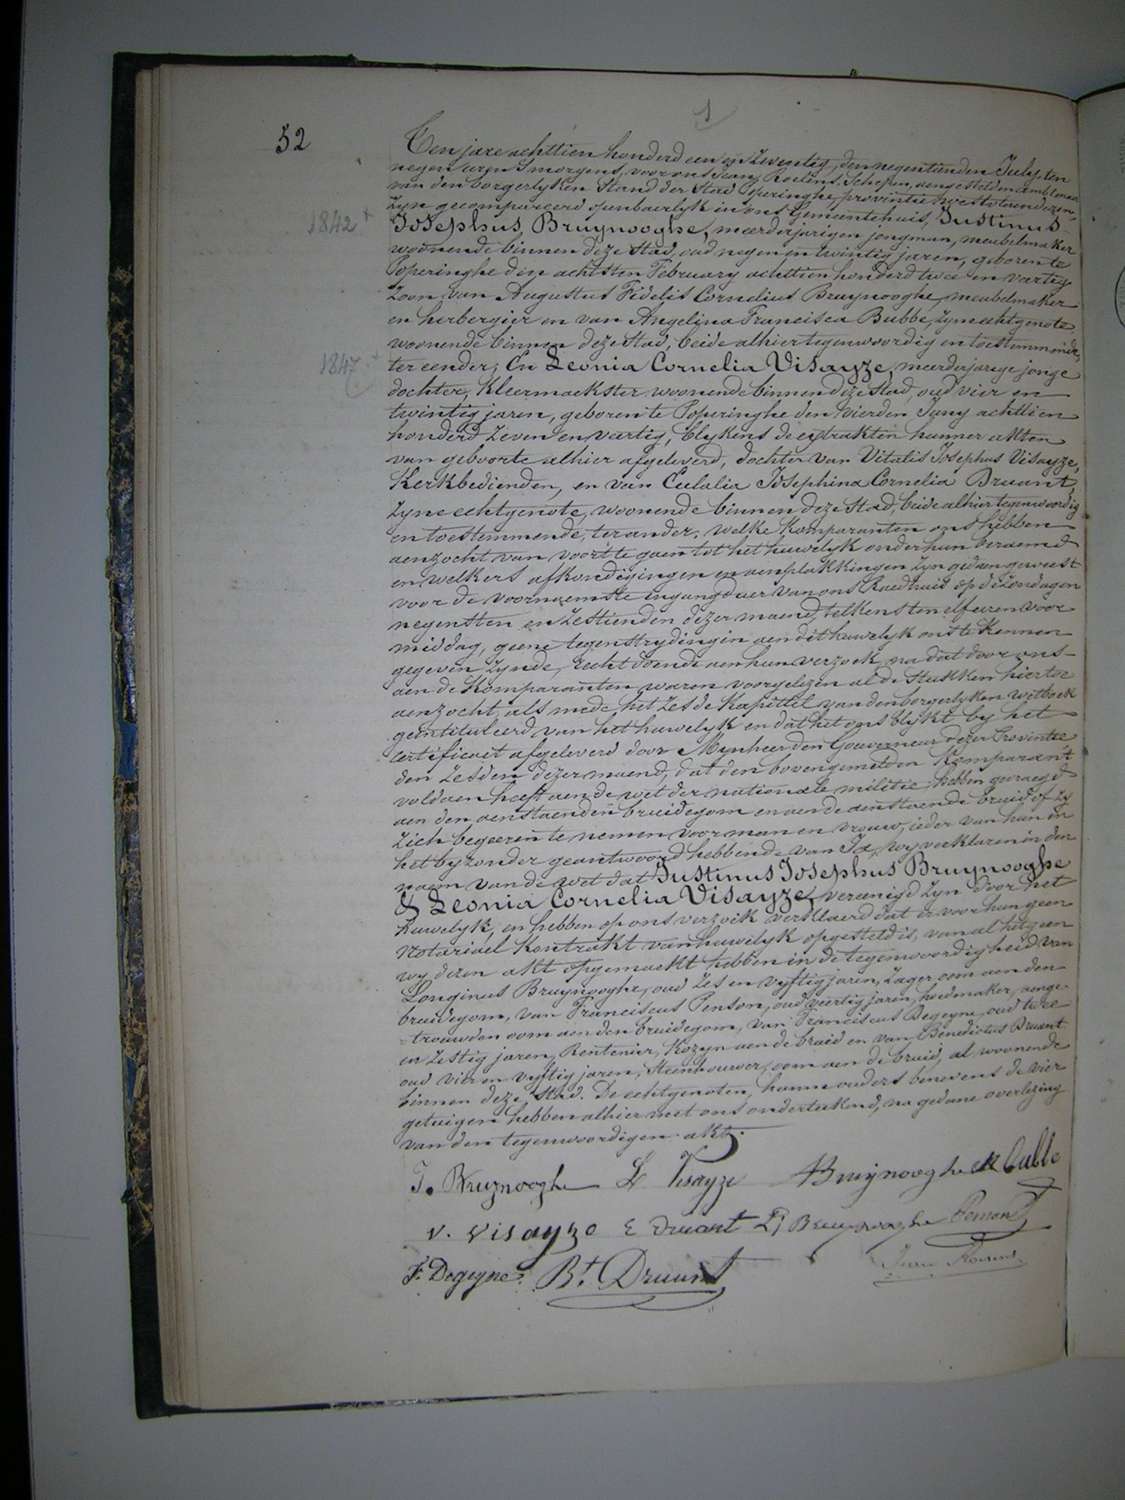 52
Ten jare achttien honderd een en zeventig, den negentienden July, ten
negen uren 's morgens, voor ons Jean Roelens, Schepen, aengestelden ambtenaer
van den borgerlyken Stand der Stad Poperinghe, provintie Westvlaenderen,
zyn gecompareerd openbaerlyk in ons Gemeentehuis, Justinus
1842 +
Josephus Bruynooghe, meerderjarigen jongman, meubelmaker
woonende binnen deze Stad, oud negen en twintig jaren, geboren te
Poperinghe den achtsten February achttien honderd twee en vartig
Zoon van Augustus Fidelis Cornelius Bruynooghe, meubelmaker
en herbergier en van Angelina Francisca Bubbe, zyne echtgenote
woonende binnen deze Stad, beide alhier tegenwoordig en toestemmende,
1847 +
ter eender; En Leonia Cornelia Visayze, meerderjarige jonge
dochter, Kleermaekster woonende binnen deze Stad, oud vier en
twintig jaren, geboren te Poperinghe den vierden Juny achttien
honderd zeven en vartig, blykens de extrakten hunner akten
van geboorte alhier afgeleverd, dochter van Vitalis Josephus Visayze,
Kerkbedienden, en van Eulalia Josephina Cornelia Druant,
zyne echtgenote, woonende binnen deze Stad, beide alhier tegenwoordig
en toestemmende, ter ander; welke Komparanten ons hebben
aenzocht van voort te gaen tot het huwelyk onder hun beraemd
en welkers afkondigingen en aenplakkingen zyn gedaen geweest
voor de voornaemste ingangduer van ons Raedhuis op de zondagen
negensten en zestienden dezer maend, telkens ten elf uren voor
middag, geene tegenstrydingen aen dit huwelyk ons te kennen
gegeven zynde, recht doende aen hun verzoek, na dat door ons
aen de Komparanten waren voorgelezen al de Stukken hiertoe
aenzocht als mede het zesde Kapittel van den borgerlyken Wetboek
geïntituleerd van het huwelyk en dat het ons blykt by het
certificaet afgeleverd door Mynheer den Gouverneur dezer Provintie
den zesden dezer maend, dat den bovengemelden Komparant
voldaen heeft aen de wet der nationale militie, hebben gevraegd
aen den aenstaenden bruidegom en aen de aenstaende bruid of zy
zich begeeren te nemen voor man en vrouw, ieder van hun in
het byzonder geantwoord hebbende van Ja, wy verklaren in den
naem van de wet dat Justinus Josephus Bruynooghe
& Leonia Cornelia Visayze vereenigd zyn door het
huwelyk, en hebben op ons verzoek verklaerd dat er voor hun geen
notariael Kontrakt van huwelyk opgesteld is, van al hetgeen
wy dezen akt opgemaekt hebben in de tegenwoordigheid van
Longinus Bruynooghe, oud zes en vyftig jaren, zager, oom aen den
bruidegom, van Franciscus Penson, oud veertig jaren, hoedmaker, aenge-
trouwden oom aen den bruidegom, van Franciscus Degeyne, oud twee
en zestig jaren, Rentenier, Kozyn aen de bruid en van Benedictus Druant
oud vier en vyftig jaren, Steenhouwer, oom aen de bruid, al woonende
binnen deze Stad. De echtgenoten, hunne ouders benevens de vier
getuigen hebben alhier met ons onderteekend, na gedane overlezing
van den tegenwoordigen akt.
J. Bruynooghe L Visayze ABruynooghe
V. Visayze E Druant L Bruynooghe Penson
F. Degeyne. Bt. Druant Jean Roelens